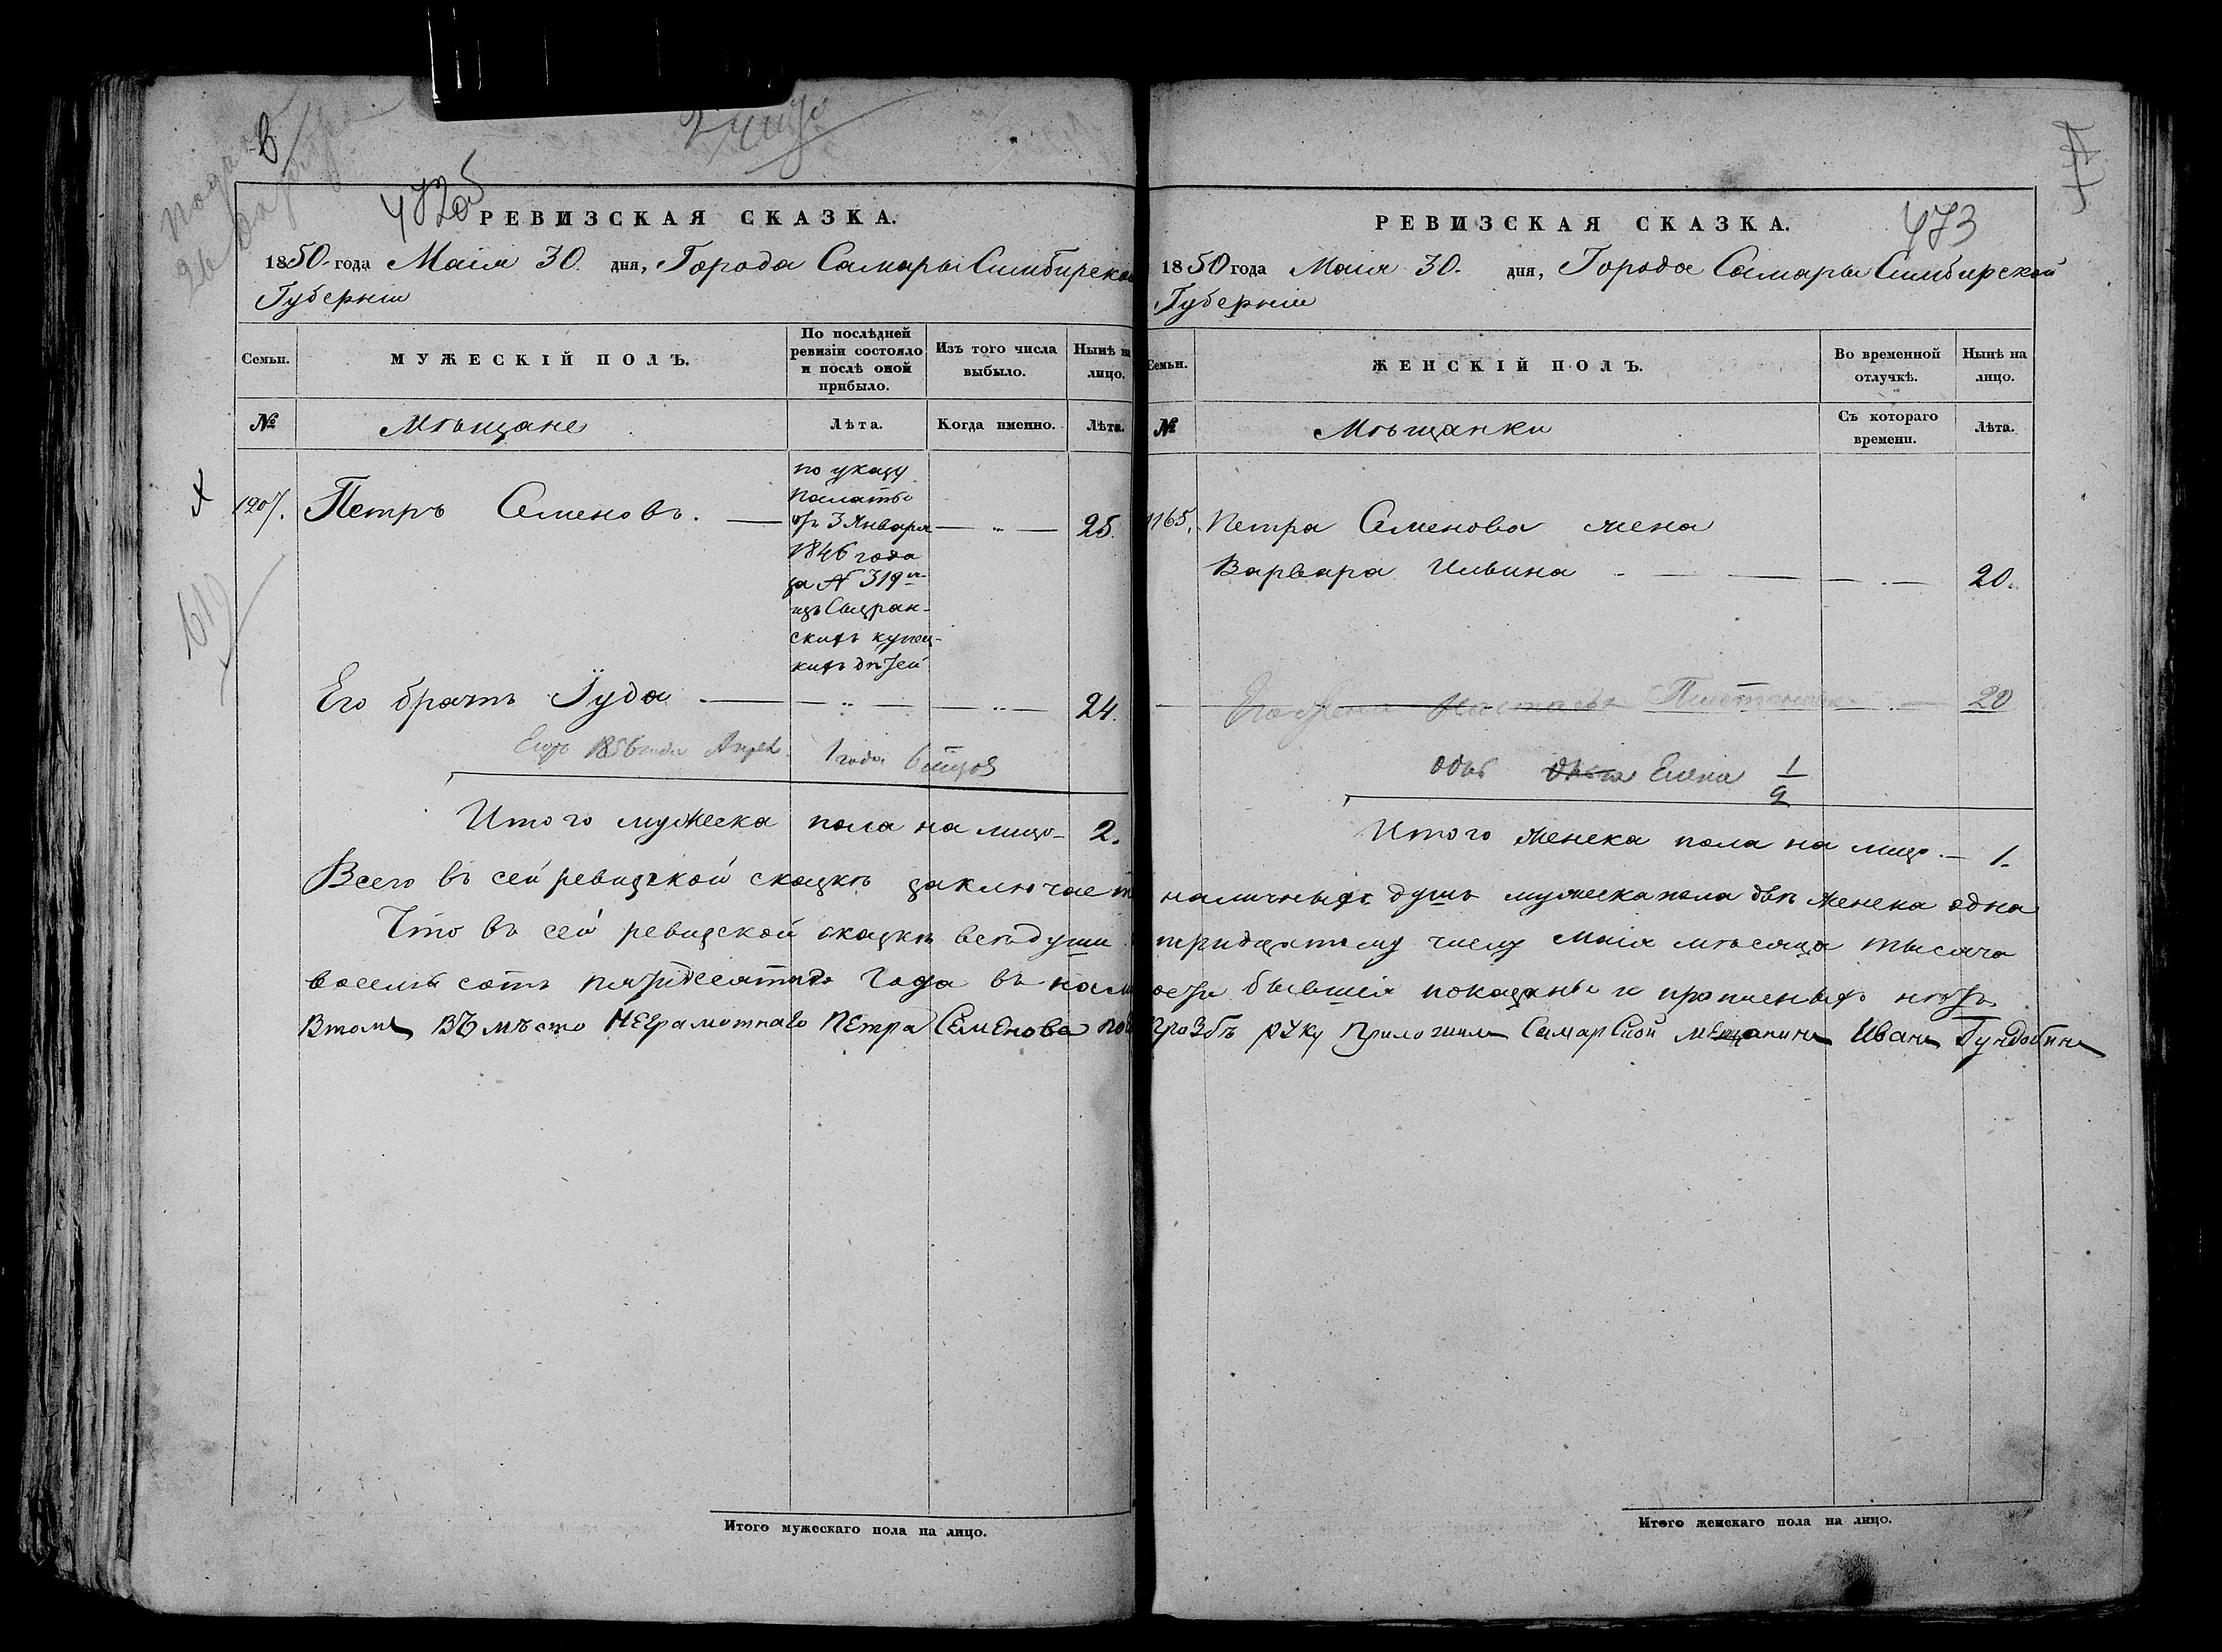 В
472об
РЕВИЗСКАЯ СКАЗКА.
1850 года Маія 30. дня, Города Самары Симбирской
Губерніи
Семьи.
МУЖЕСКІЙ ПОЛЪ.
По послѣдней
ревизіи состояло
и послѣ оной
прибыло.
Изъ того числа
выбыло.
Нынѣ на
лицо.
№
Мѣщане
Лѣта.
Когда именно.
Лѣта.
по указу
палаты
отъ 3 Января
1846 года
за № 319
изъ Сызран-
скихъ купец-
кихъ дѣтей
1207. Петръ Семеновъ. 25.
Его братъ Іуда 24.
1856 года 1 года
Итого мужеска пола на лицо 2.
Всего въ сей ревизской сказкѣ заключает
Что въ сей ревизской сказкѣ всѣ души
восемь сотъ пятдесятаго года въ
Втомъ ВЪмѣсто НЕграмотнаго ПЕтра СЕмЕнова
Итого мужескаго пола на лицо.
473
РЕВИЗСКАЯ СКАЗКА.
1850 года Маія 30. дня, Города Самары Симбирской
Губерніи
Семьи.
ЖЕНСКІЙ ПОЛЪ.
Во временной
отлучкѣ.
Нынѣ на
лицо.
№
Мѣщанки
Съ котораго
времени.
Лѣта.
1165. Петра Семенова жена
Варвара Ильина 20.
Его жена Настасья 20
Елена 1/2
Итого женска пола на лицо. 1.
наличныхъ душъ мужеска пола двѣ женска одна
тридцатому числу Маія мѣсяца тысяча
бывшія показаны и прописныхъ нѣтъ
прозбѣ руку приложилъ Самарской мещанинъ Иванъ Гундобинъ
Итого женскаго пола на лицо.